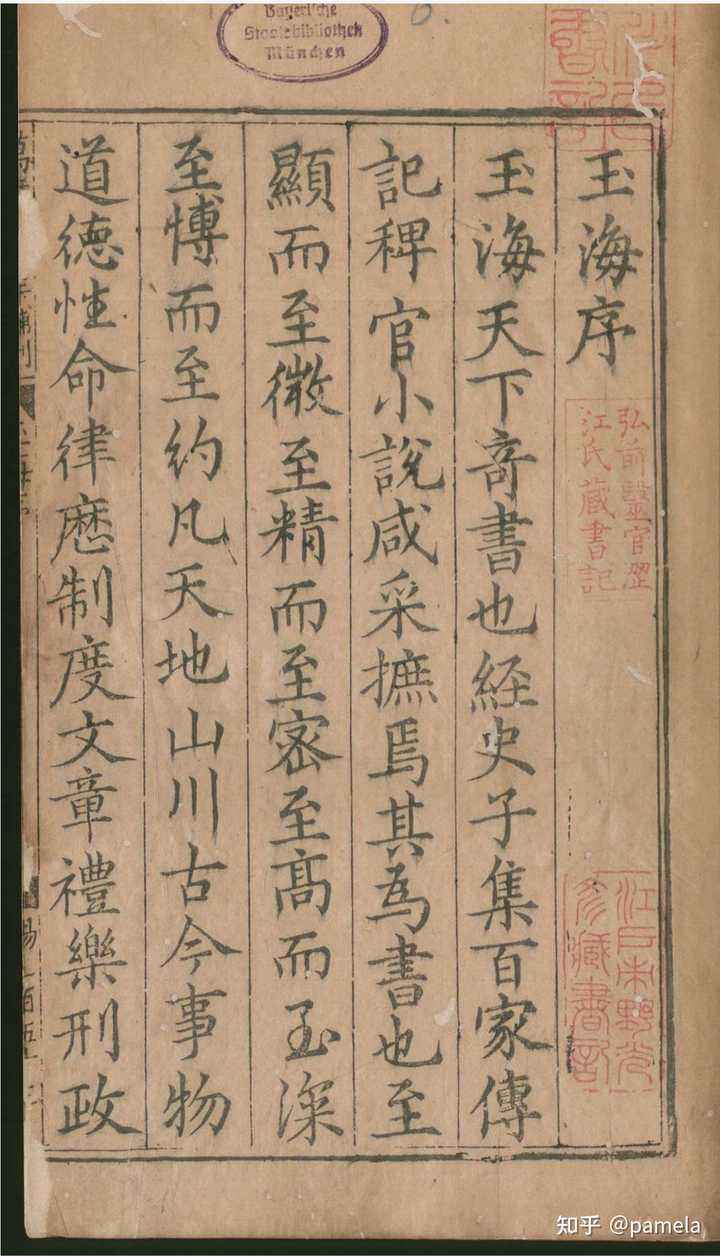 Bayerische
Staatsbibliothek
München
玉海序
玉海天下奇書也経史子集百家傳
記稗官小說咸采摭焉其為書也至
顯而至微至精而至密至髙而至深
至愽而至約凡天地山川古今事物
道德性命律暦制度文章禮樂刑政
弘前醫官澀
江氏藏書記
藏書記
知乎 @pamela